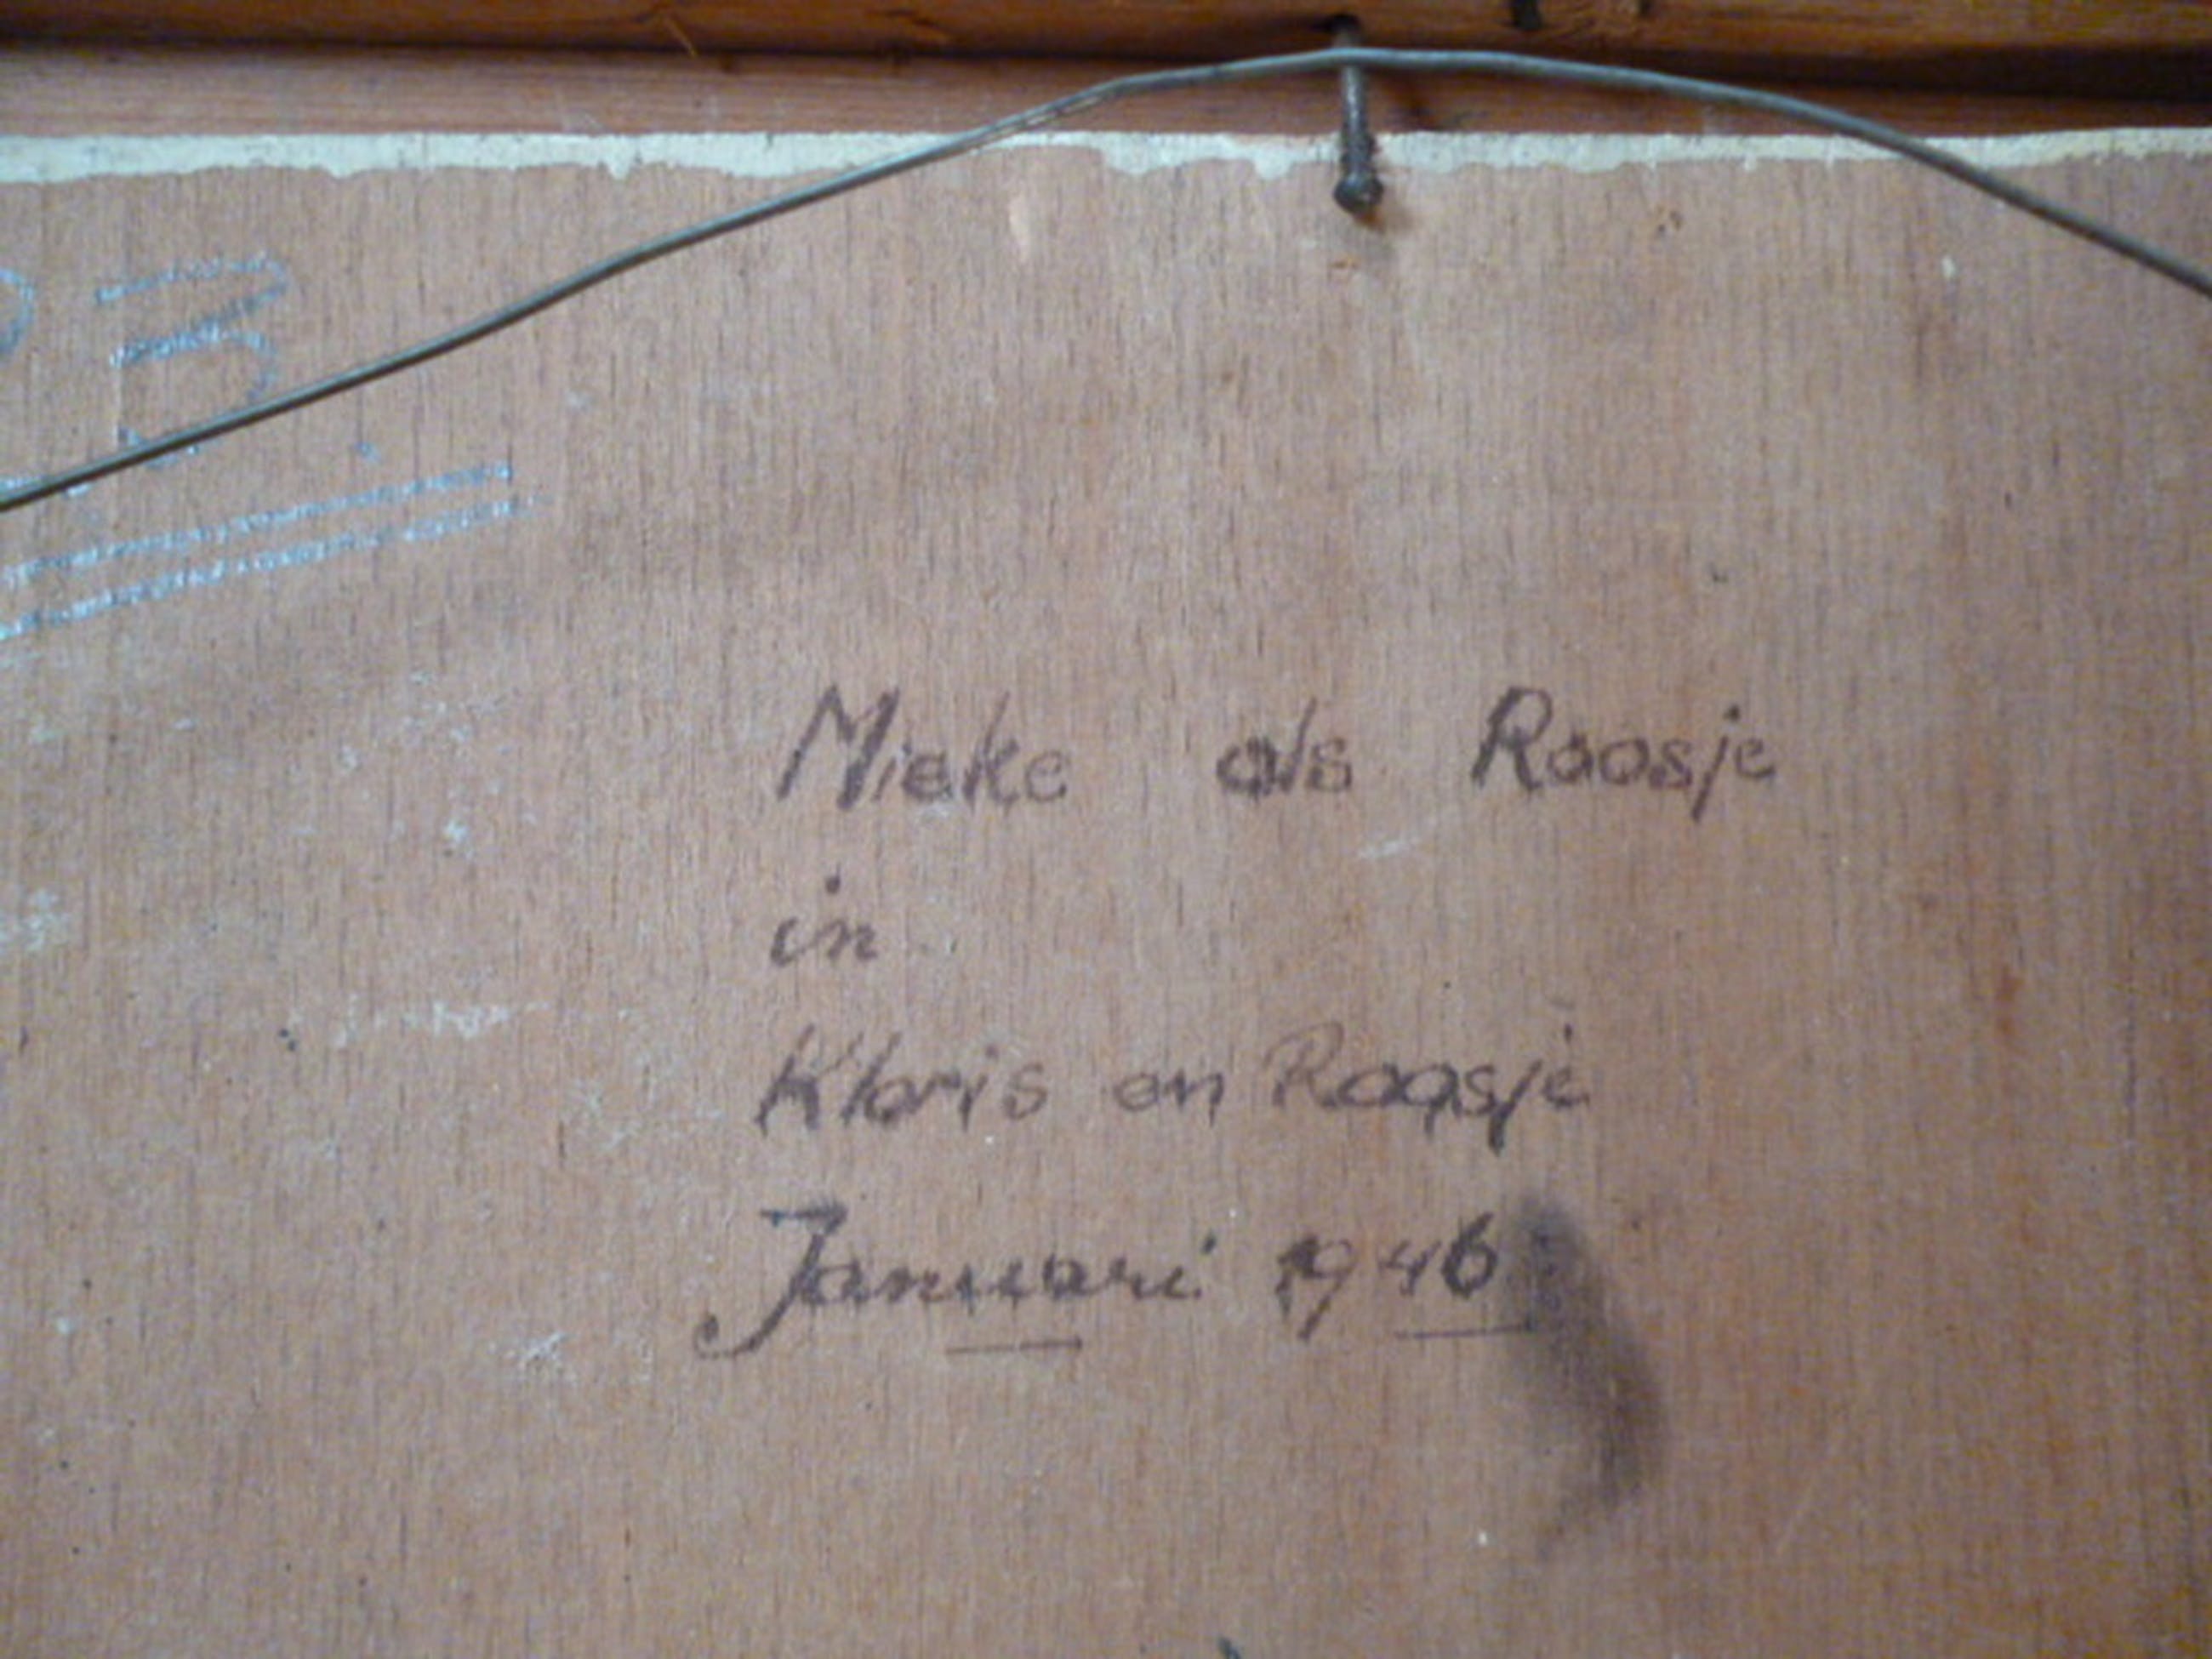 Mieke als Roosje
in
Kloris en Roosje
Januari 1946